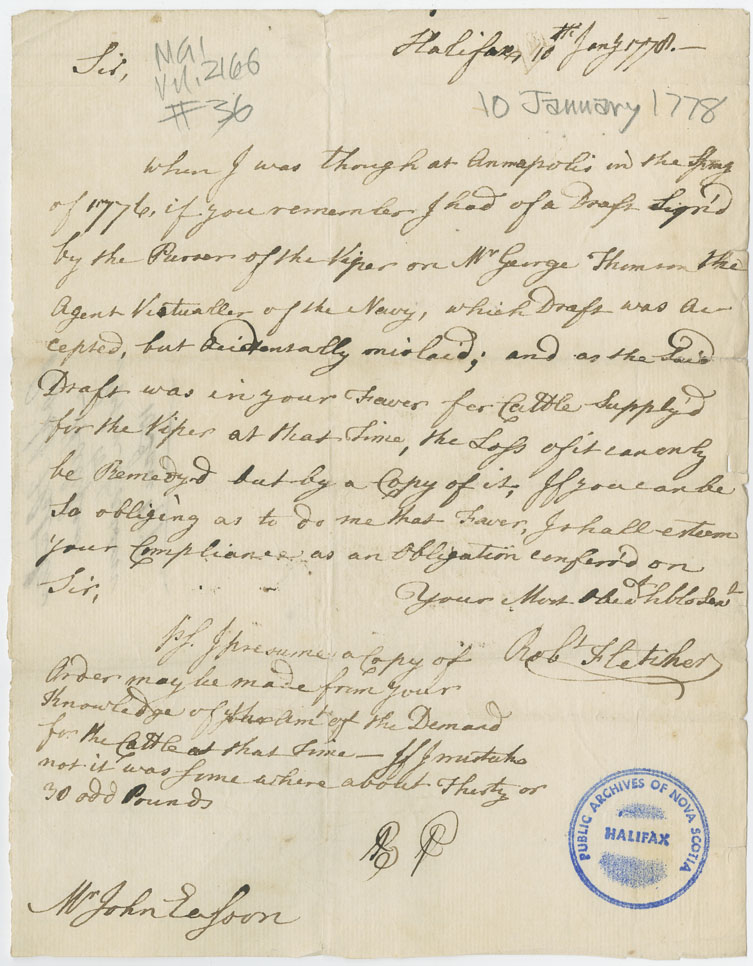 Halifax, 10th Jany 1778.—
Sir,
MG1
Vol. 2166
#36
10 January 1778
When I was though at Annapolis in the Spring
of 1776, if you remember I had of a Draft Sign'd
by the Purser of the Viper on Mr George Thomson the
Agent Victualler of the Navy, which Draft was Ac-
cepted, but Acidentally mislaid; and as the Said
Draft was in your Favor for Cattle Supply'd
for the Viper at that Time, the Loss of it can only
be Remedy'd but by a Copy of it; If you can be
So obliging as to do me that Favor, I shall esteem
your Compliance as an Obligation conferr'd on
Sir,
Your Most Obedt hble Servt
Robt Fletcher
PS. I presume a Copy of
Order may be made from your
Knowledge of the Amt of the Demand
for the Cattle at that Time — If I mistake
not it was Some where about Thirty or
30 odd Pounds
R F
Mr John Easson
PUBLIC ARCHIVES OF NOVA SCOTIA
HALIFAX